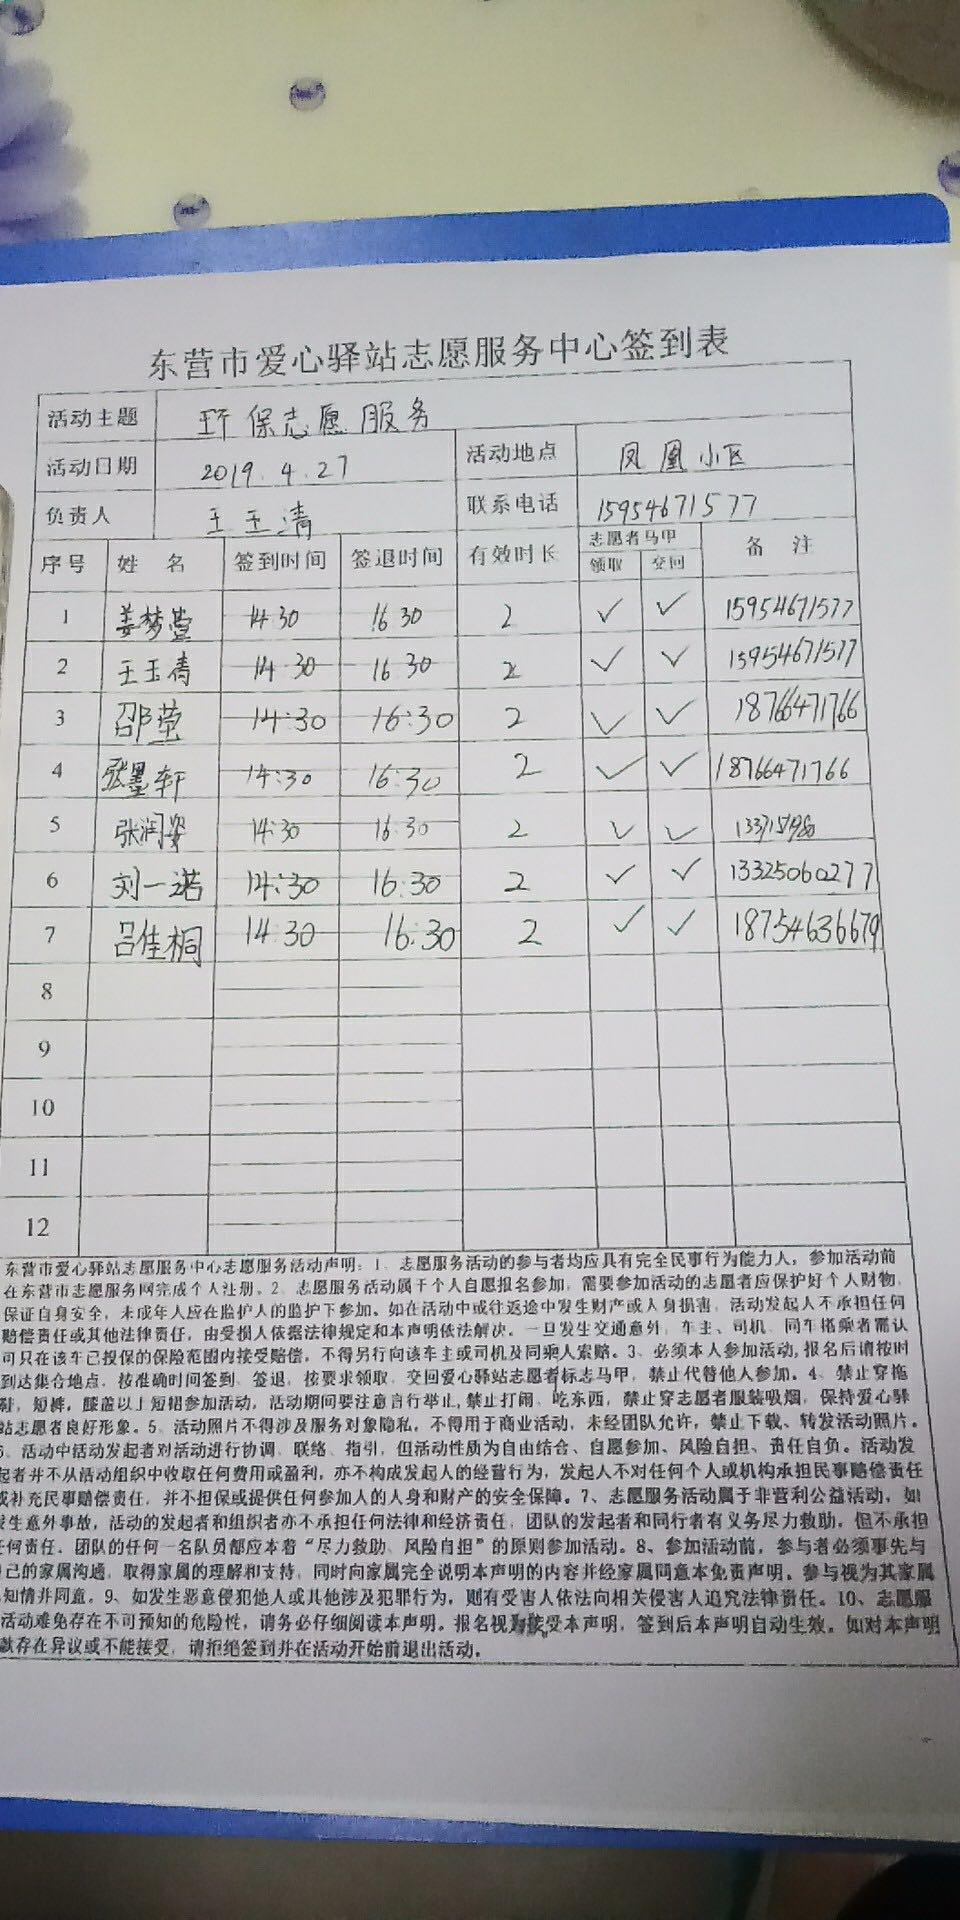 东营市爱心驿站志愿服务中心签到表
活动主题 环保志愿服务
活动日期 2019.4.27 活动地点 凤凰小区
负责人 王玉清 联系电话 15954671577
序号 姓名 签到时间 签退时间 有效时长 志愿者马甲 领取 交回 备注
1 姜梦萱 14 30 16 30 2 ✓ ✓ 15954671577
2 王玉清 14:30 16:30 2 ✓ ✓ 15954671577
3 邵莹 14:30 16:30 2 ✓ ✓ 18766471766
4 张墨轩 14:30 16:30 2 ✓ ✓ 18766471766
5 张润姿 14:30 16:30 2 ✓ ✓
6 刘一诺 14:30 16:30 2 ✓ ✓ 13325060277
7 吕佳桐 14:30 16:30 2 ✓ ✓ 18754636679
8
9
10
11
12
东营市爱心驿站志愿服务中心志愿服务活动声明：1、志愿服务活动的参与者均应具有完全民事行为能力人，参加活动前
在东营市志愿服务网完成个人注册。2、志愿服务活动属于个人自愿报名参加，需要参加活动的志愿者应保护好个人财物，
保证自身安全，未成年人应在监护人的监护下参加。如在活动中或往返途中发生财产或人身损害，活动发起人不承担任何
赔偿责任或其他法律责任，由受损人依据法律规定和本声明依法解决。一旦发生交通意外，车主、司机、同车搭乘者需认
可只在该车已投保的保险范围内接受赔偿，不得另行向该车主或司机及同乘人索赔。3、必须本人参加活动，报名后请按时
到达集合地点，按准确时间签到、签退，按要求领取、交回爱心驿站志愿者标志马甲，禁止代替他人参加。4、禁止穿拖
鞋，短裤，膝盖以上短裙参加活动，活动期间要注意言行举止，禁止打闹、吃东西，禁止穿志愿者服装吸烟，保持爱心驿
站志愿者良好形象。5、活动照片不得涉及服务对象隐私，不得用于商业活动，未经团队允许，禁止下载、转发活动照片。
6、活动中活动发起者对活动进行协调、联络、指引，但活动性质为自由结合、自愿参加、风险自担、责任自负。活动发
起者并不从活动组织中收取任何费用或盈利，亦不构成发起人的经营行为，发起人不对任何个人或机构承担民事赔偿责任
或补充民事赔偿责任，并不担保或提供任何参加人的人身和财产的安全保障。7、志愿服务活动属于非营利公益活动，如
发生意外事故，活动的发起者和组织者亦不承担任何法律和经济责任，团队的发起者和同行者有义务尽力救助，但不承担
任何责任。团队的任何一名队员都应本着“尽力救助、风险自担”的原则参加活动。8、参加活动前，参与者必须事先与
自己的家属沟通，取得家属的理解和支持，同时向家属完全说明本声明的内容并经家属同意本免责声明。参与视为其家属
知情并同意。9、如发生恶意侵犯他人或其他涉及犯罪行为，则有受害人依法向相关侵害人追究法律责任。10、志愿服
活动难免存在不可预知的危险性，请务必仔细阅读本声明。报名视为接受本声明，签到后本声明自动生效。如对本声明
款存在异议或不能接受，请拒绝签到并在活动开始前退出活动。